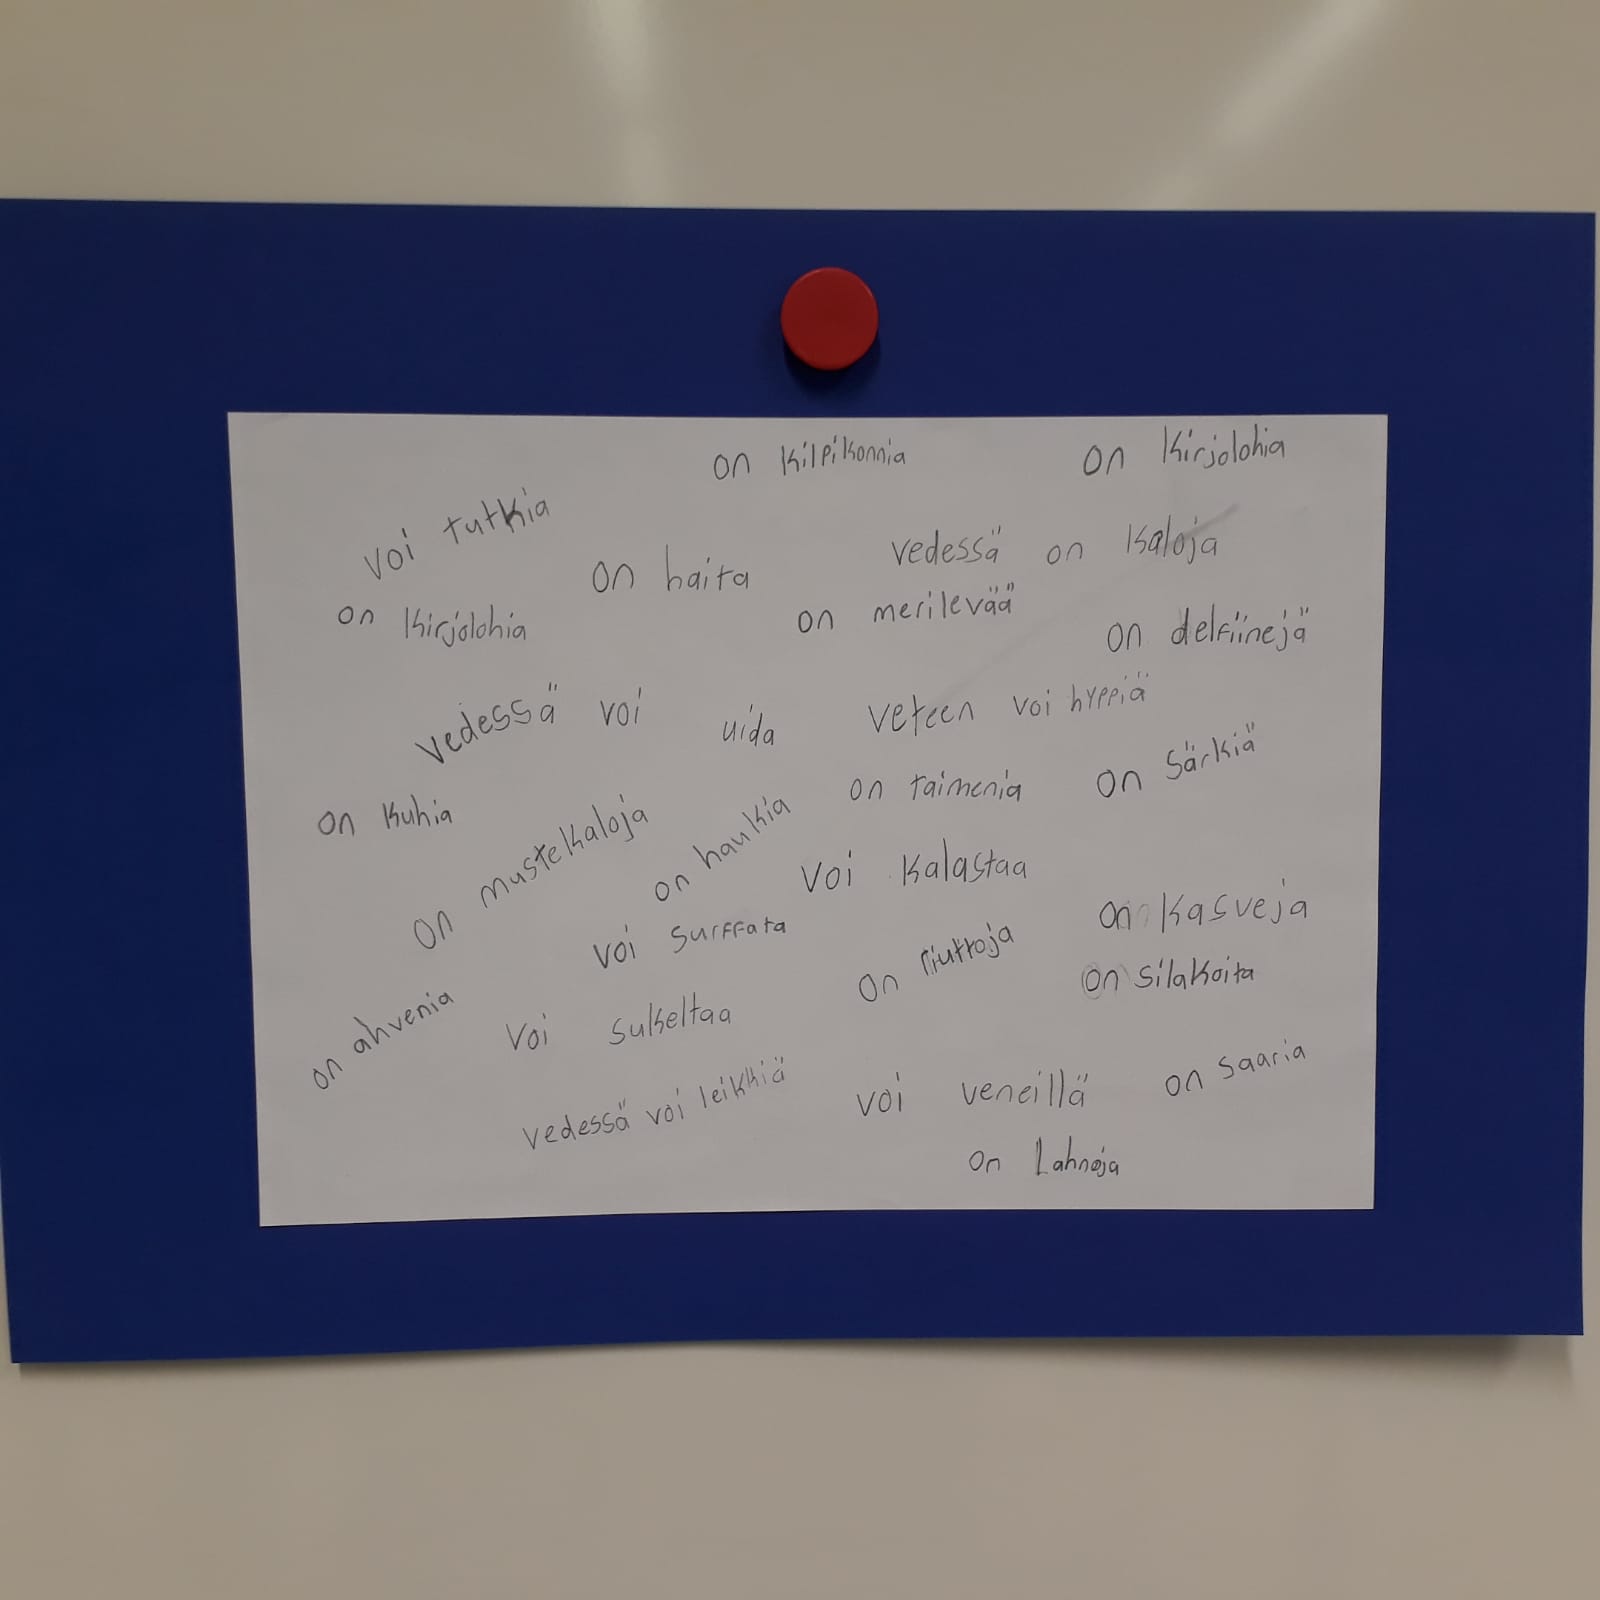 on kilpikonnia
on kirjolohia
voi tutkia
on haita
vedessä on kaloja
on kirjolohia
on merilevää
on delfiinejä
vedessä voi uida
veteen voi hyppiä
on kuhia
on mustekaloja
on haukia
on taimenia
on särkiä
voi kalastaa
voi surffata
on riuttoja
on kasveja
on silakoita
on ahvenia
voi sukeltaa
vedessä voi leikkiä
voi veneillä
on saaria
on Lahnoja